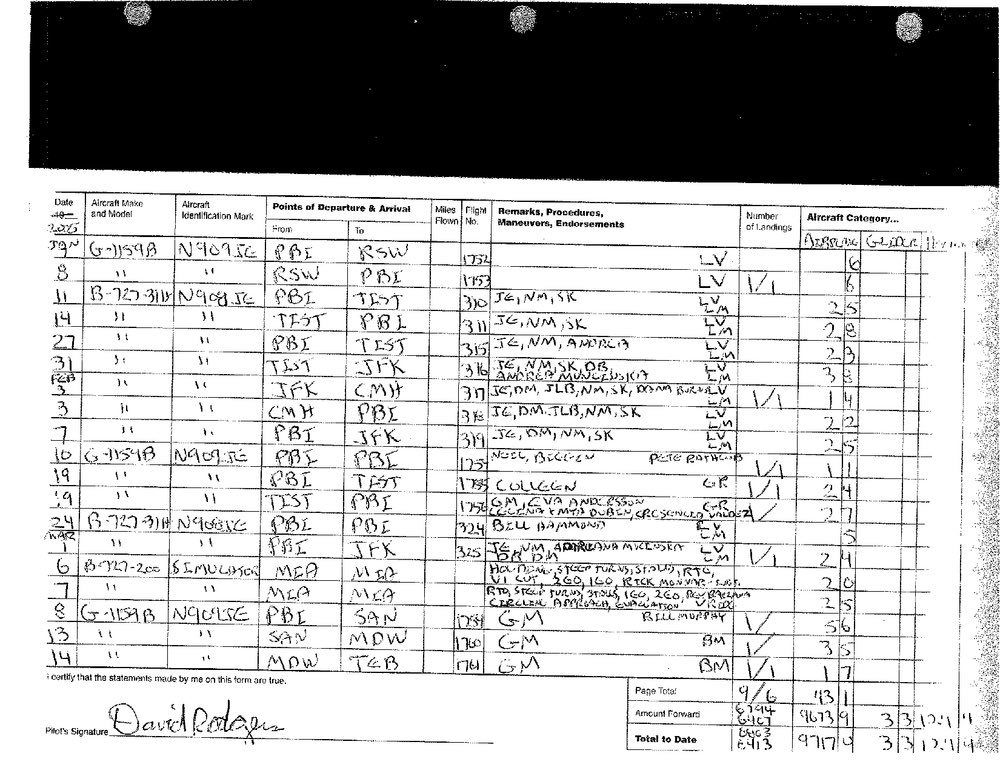 Date
2005
Aircraft Make and Model
Aircraft Identification Mark
Points of Departure & Arrival
From
To
Miles Flown
Flight No.
Remarks, Procedures, Maneuvers, Endorsements
Number of Landings
Aircraft Category...
AIRPLANE GLIDER
JAN G-1159B N909JE PBI RSW 1752 LV 6
8 " " RSW PBI 1753 LV 1/1 6
11 B-727-31H N908JE PBI TIST 310 JE, NM, SK LV LM 2 5
14 " " TIST PBI 311 JE, NM, SK LV LM 2 8
27 " " PBI TIST 315 JE, NM, ANDREA LV LM 2 3
31 " " TIST JFK 316 JE, NM, SK, DB, LV LM 3 8
FEB
3 " " JFK CMH 317 JE, DM, JLB, NM, SK, DANA BURNS LV LM 1/1 1 4
3 " " CMH PBI 318 JE, DM, JLB, NM, SK LV LM 2 2
7 " " PBI JFK 319 JE, DM, NM, SK LV LM 2 5
10 G-1159B N909JE PBI PBI PETE 1/1 1 1
19 " " PBI TIST 1755 COLLEEN GR 1/1 2 4
19 " " TIST PBI 1756 GM, EVA ANDERSSON GR 1/ 2 7
24 B-727-31H N908JE PBI PBI 324 BILL HAMMOND LV LM 5
MAR
1 " " PBI JFK 325 JE, NM, LV LM 1/1 2 4
6 B-727-200 SIMULATOR MIA MIA HOLDING, STEEP TURNS, STALLS, RTO,
V1 CUT, 2EO, 1EO, 2 0
7 " " MIA MIA RTO, STEEP TURNS, STALLS, 1EO, 2EO,
CIRCLING APPROACH, EVACUATION 2 5
8 G-1159B N909JE PBI SAN 1759 GM BILL MURPHY 1/ 5 6
13 " " SAN MDW 1760 GM BM 1/ 3 5
14 " " MDW TEB 1761 GM BM 1/1 1 7
I certify that the statements made by me on this form are true.
Pilot's Signature David Rodgers
Page Total 9/6 43 1
Amount Forward 6794 6407 9673 9 3 3
Total to Date 6803 6413 9717 0 3 3